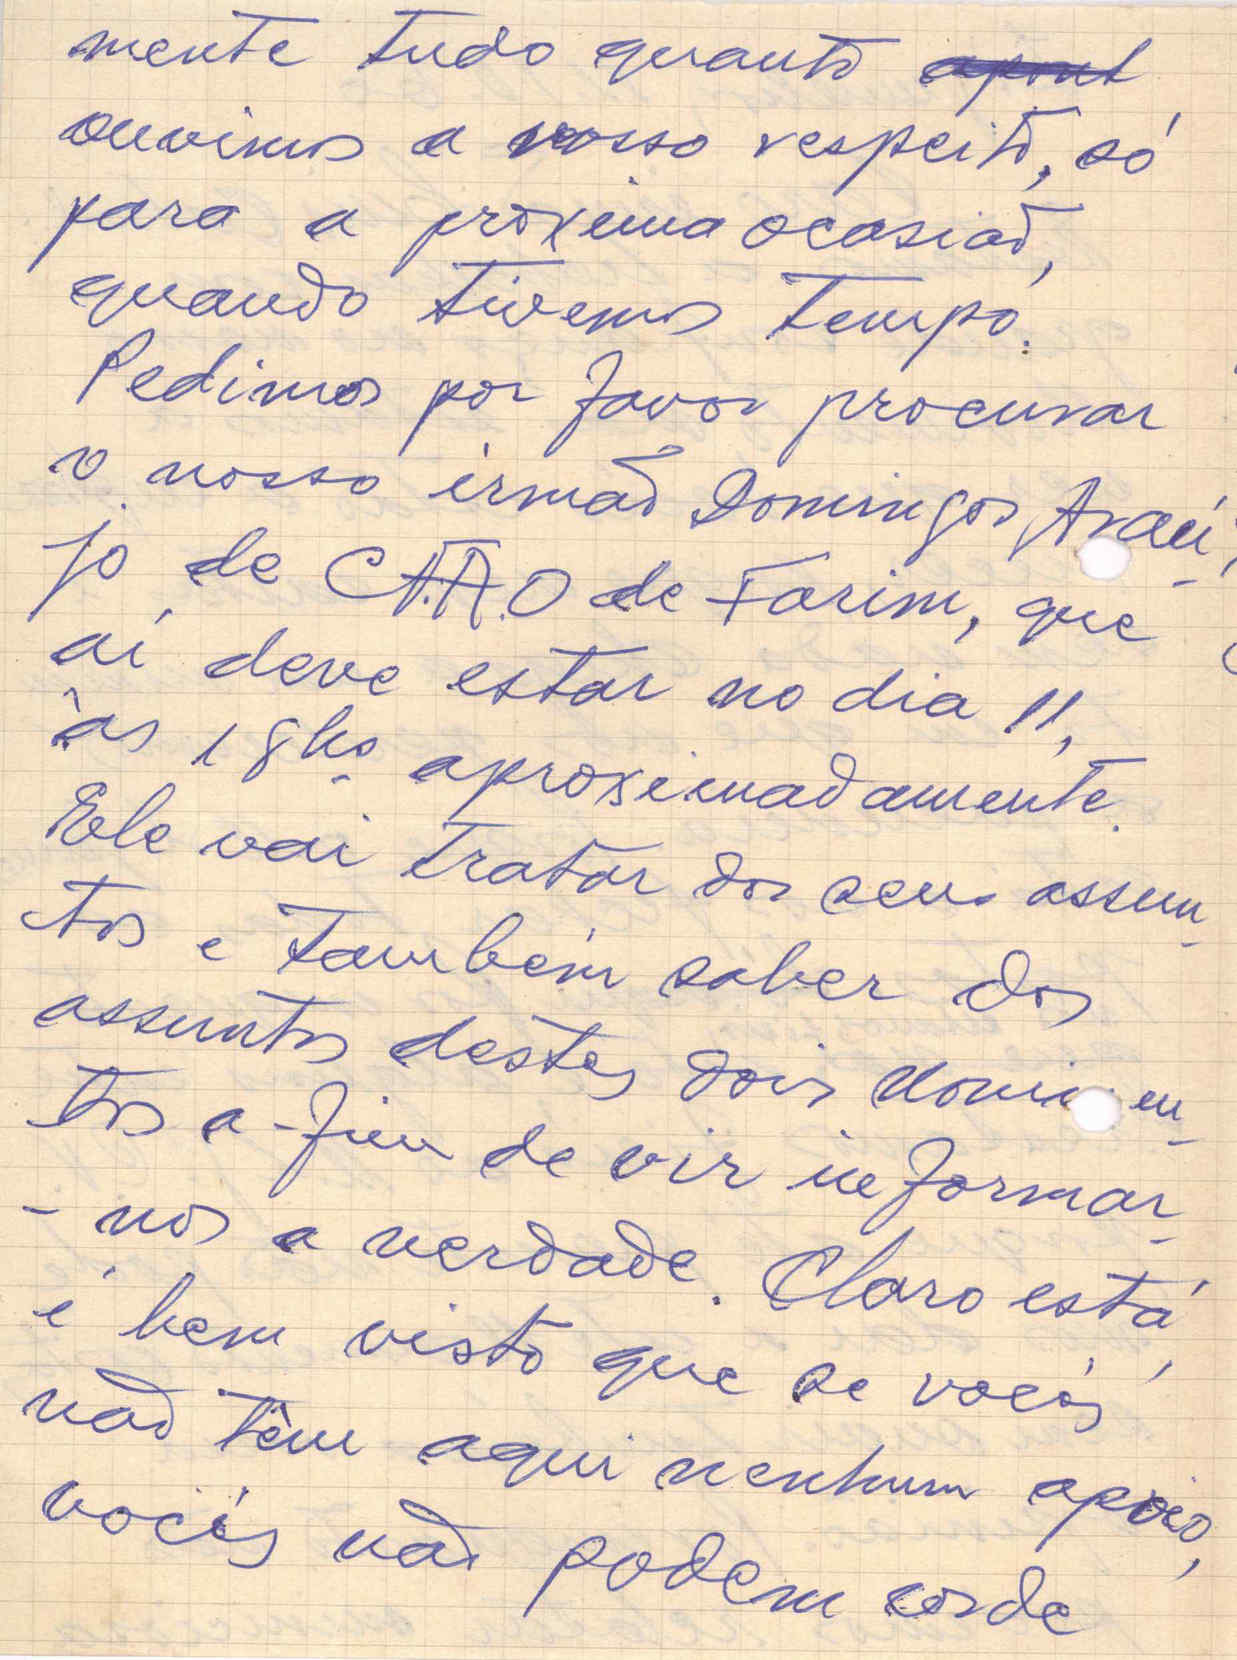 mente tudo quanto apont
ouvimos a vosso respeito, só
para a próxima ocasião,
quando tivermos tempo.
Pedimos por favor procurar
o nosso irmão Domingos Araú-
jo de C.A.A.O de Farim, que
aí deve estar no dia 11,
às 18hs aproximadamente.
Ele vai tratar dos seus assun-
tos e também saber dos
assuntos destes dois
tos a-fim de vir informar-
-nos a verdade. Claro está
e bem visto que se vocês
não têm aqui nenhum apoio,
vocês não podem